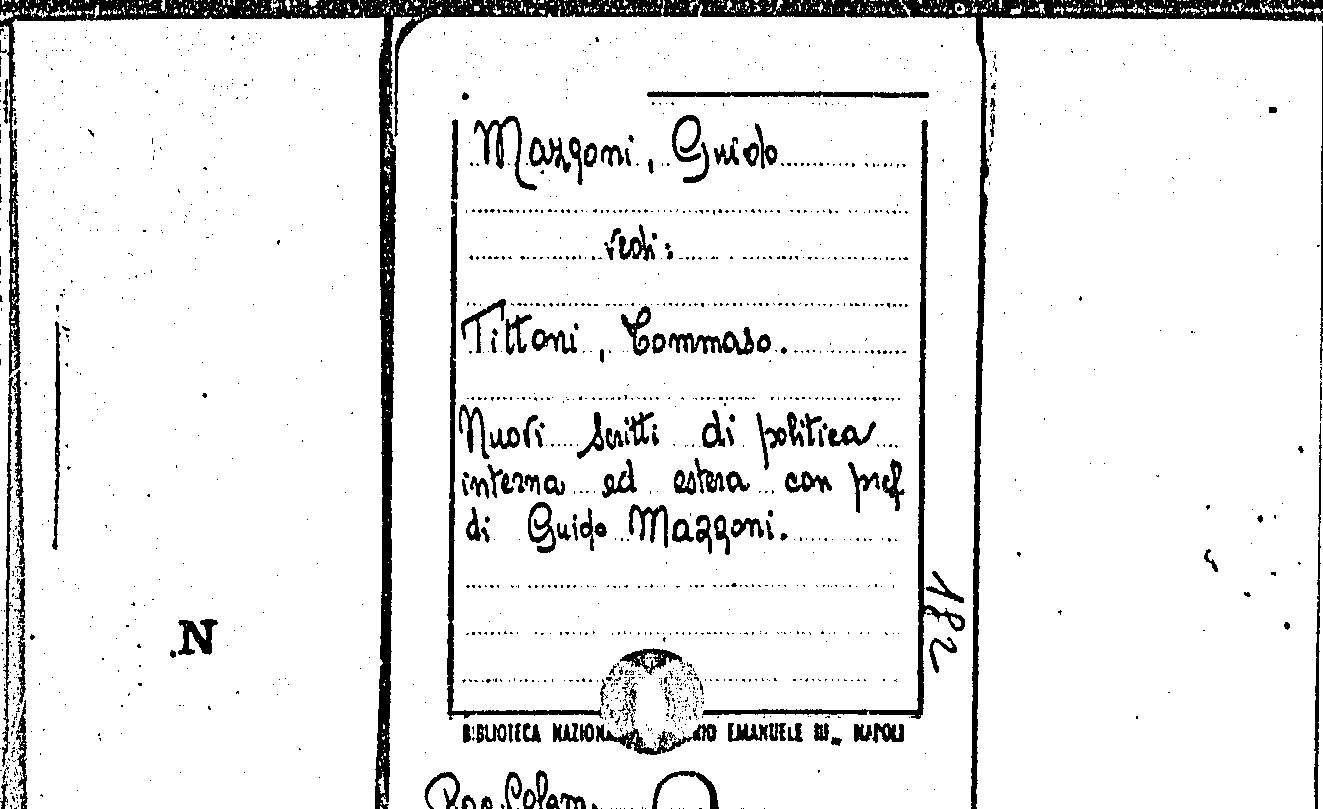 Mazzoni, Guido
vedi:
Tittoni, Tommaso.
Nuovi scritti di politica
interna ed estera con pref.
di Guido Mazzoni.
182
N
BIBLIOTECA NAZIONA RIO EMANUELE III„ NAPOLI